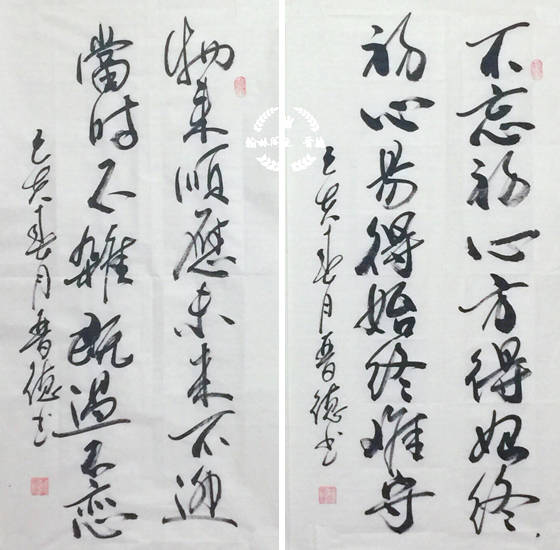 不忘初心方得始终
初心易得始终难守
己亥年春月晋德书
物来顺应未来不迎
當时不雜既過不恋
己亥年春月晋德书